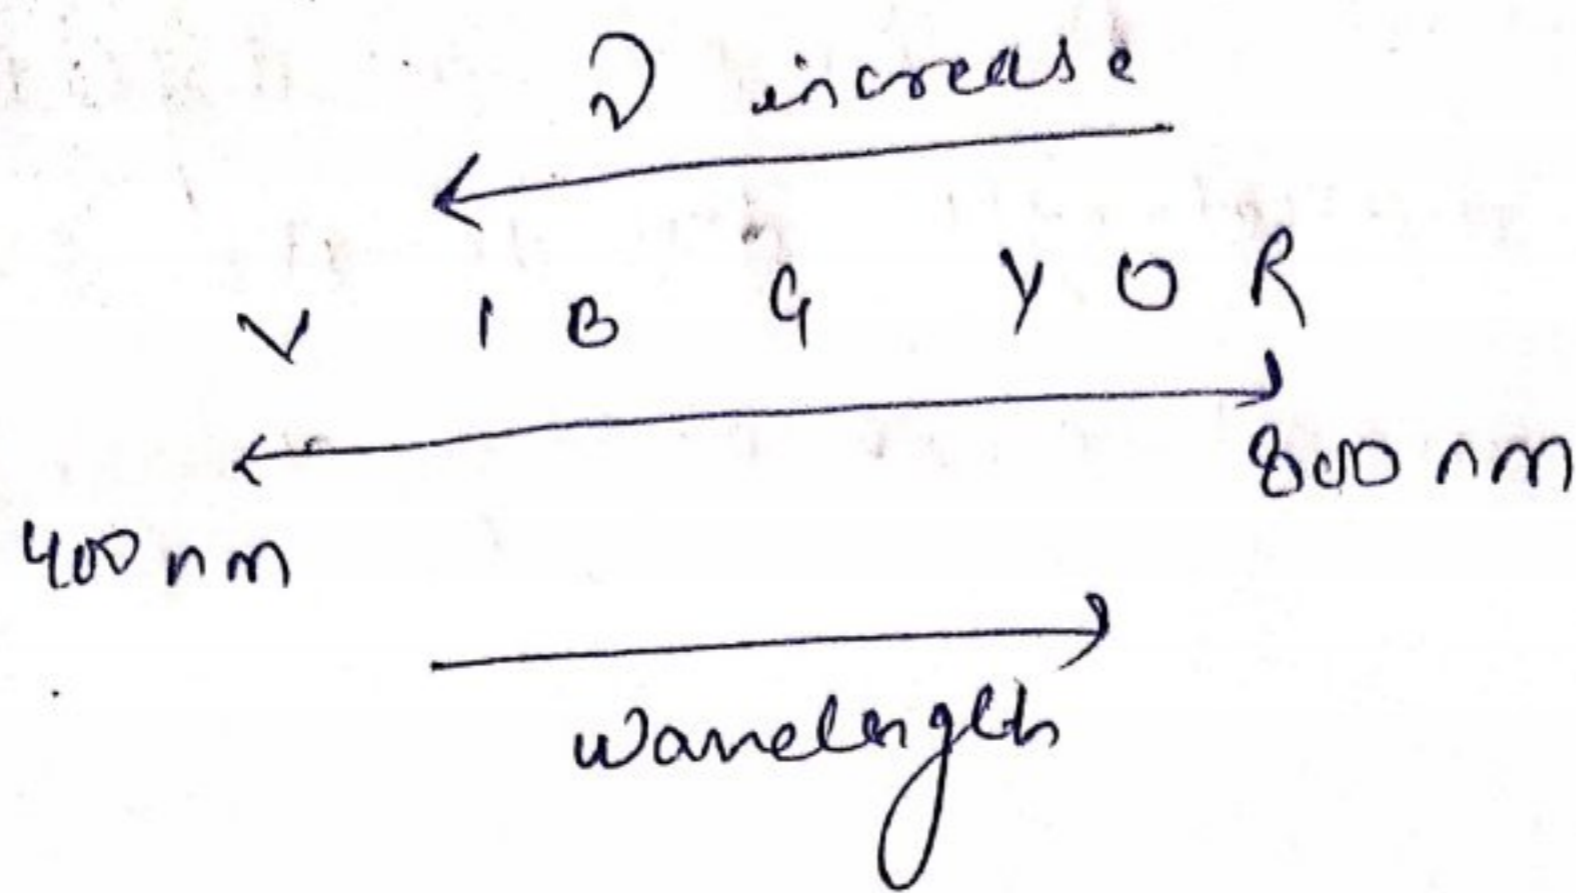 ν increase
V I B G Y O R
400 nm 800 nm
wavelength